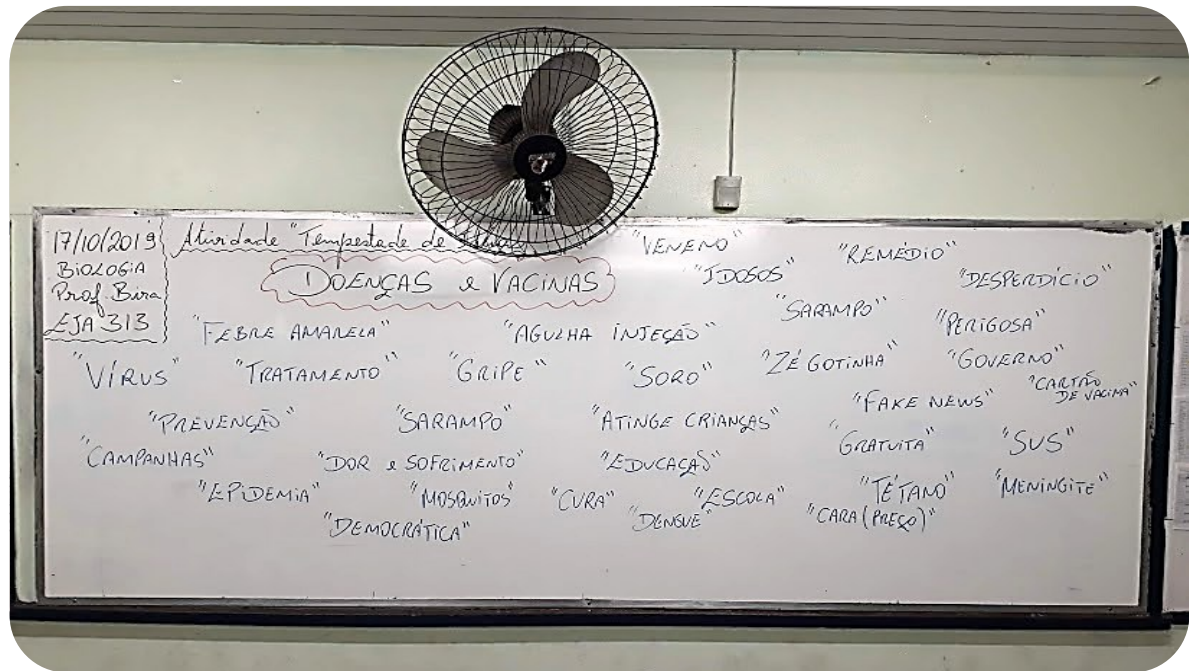 17/10/2019
BIOLOGIA
Prof. Bira
EJA 313
Atividade "Tempestade de
DOENÇAS e VACINAS
"VENENO"
"REMÉDIO"
"IDOSOS"
"DESPERDÍCIO"
"SARAMPO"
"PERIGOSA"
"FEBRE AMARELA"
"AGULHA INJEÇÃO"
"ZÉ GOTINHA"
"GOVERNO"
"VÍRUS"
"TRATAMENTO"
"GRIPE"
"SORO"
"CARTÃO
DE VACINA"
"FAKE NEWS"
"PREVENÇÃO"
"SARAMPO"
"ATINGE CRIANÇAS"
"GRATUITA"
"SUS"
"CAMPANHAS"
"DOR e SOFRIMENTO"
"EDUCAÇÃO"
"EPIDEMIA"
"MOSQUITOS"
"CURA"
"ESCOLA"
"TÉTANO"
"MENINGITE"
"DEMOCRÁTICA"
"DENGUE"
"CARA (PREÇO)"